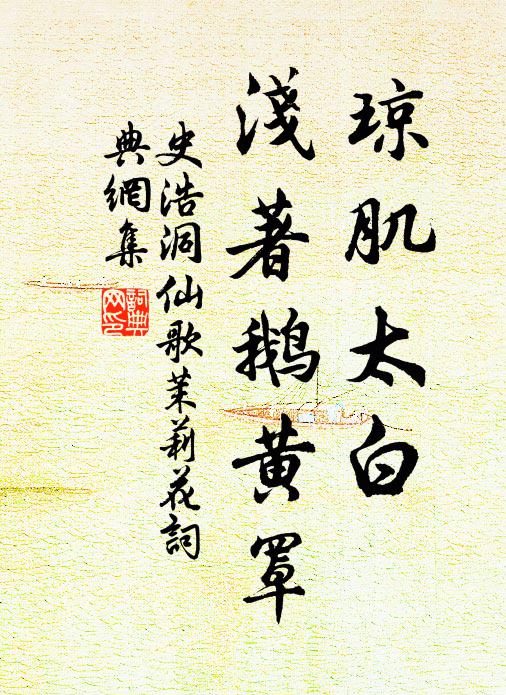 琼肌太白
淺著鵝黄罩
史浩洞仙歌茉莉花詞
典網集
詞典
网印